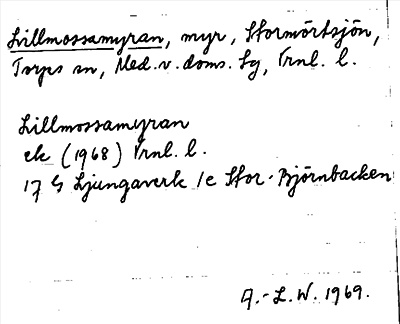 Lillmossamyran, myr, Stormörtsjön,
Torps sn, Med. v. doms. lg, Vrnl. l.
Lillmossamyran
ek (1968) Vrnl. l.
17 G Ljungaverk 1c Stor-Björnbacken
A.-L. W. 1969.